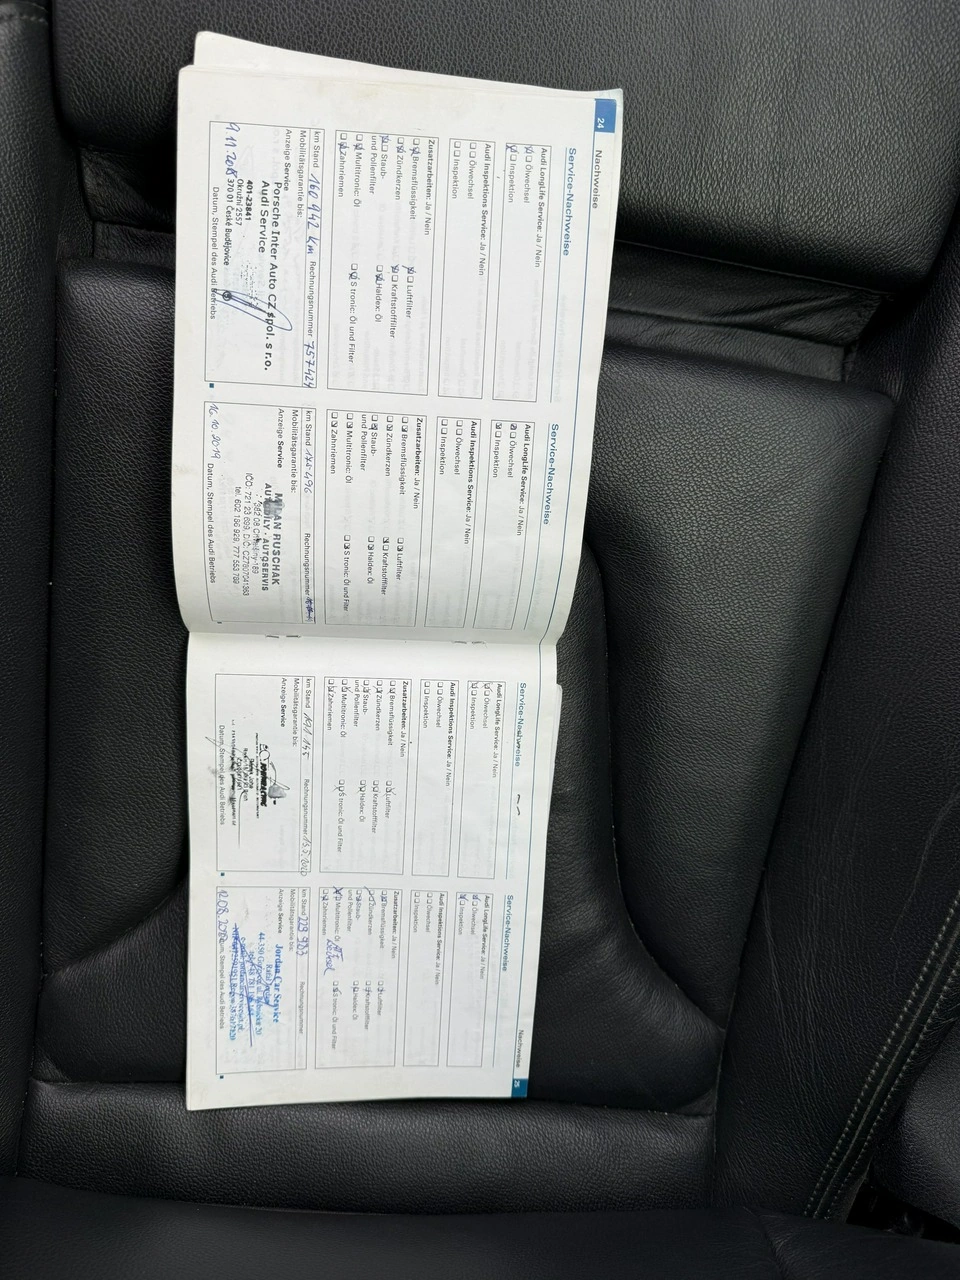 24
Nachweise
Service-Nachweise
Audi LongLife Service: Ja / Nein
Ölwechsel
Inspektion
Audi Inspektions Service: Ja / Nein
Ölwechsel
Inspektion
Zusatzarbeiten: Ja / Nein
Bremsflüssigkeit
Luftfilter
Zündkerzen
Kraftstofffilter
Staub-
und Pollenfilter
Haldex: Öl
Multitronic: Öl
S tronic: Öl und Filter
Zahnriemen
km Stand 160 942 km Rechnungsnummer 757424
Mobilitätsgarantie bis:
Anzeige Service
Porsche Inter Auto CZ spol. s r.o.
Audi Service
401-23841
Okružní 2557
370 01 České Budějovice
9.11.2018
Datum, Stempel des Audi Betriebs
Service-Nachweise
Audi LongLife Service: Ja / Nein
Ölwechsel
Inspektion
Audi Inspektions Service: Ja / Nein
Ölwechsel
Inspektion
Zusatzarbeiten: Ja / Nein
Bremsflüssigkeit
Luftfilter
Zündkerzen
Kraftstofffilter
Staub-
und Pollenfilter
Haldex: Öl
Multitronic: Öl
S tronic: Öl und Filter
Zahnriemen
km Stand 175 496 Rechnungsnummer
Mobilitätsgarantie bis:
Anzeige Service
RUSCHAK
AUTODÍLY - AUTOSERVIS
IČO: 721 23 699, DIČ: CZ7807041363
tel. 602 186 929, 777 553 789
16.10.2019
Datum, Stempel des Audi Betriebs
Service-Nachweise
Audi LongLife Service: Ja / Nein
Ölwechsel
Inspektion
Audi Inspektions Service: Ja / Nein
Ölwechsel
Inspektion
Zusatzarbeiten: Ja / Nein
Bremsflüssigkeit
Luftfilter
Zündkerzen
Kraftstofffilter
Staub-
und Pollenfilter
Haldex: Öl
Multitronic: Öl
S tronic: Öl und Filter
Zahnriemen
km Stand Rechnungsnummer
Mobilitätsgarantie bis:
Anzeige Service
Datum, Stempel des Audi Betriebs
Nachweise
25
Service-Nachweise
Audi LongLife Service: Ja / Nein
Ölwechsel
Inspektion
Audi Inspektions Service: Ja / Nein
Ölwechsel
Inspektion
Zusatzarbeiten: Ja / Nein
Bremsflüssigkeit
Luftfilter
Zündkerzen
Kraftstofffilter
Staub-
und Pollenfilter
Haldex: Öl
Multitronic: Öl
S tronic: Öl und Filter
Zahnriemen
km Stand 223 983 Rechnungsnummer
Mobilitätsgarantie bis:
Anzeige Service
Jordan Car Service
12.08.
Datum, Stempel des Audi Betriebs